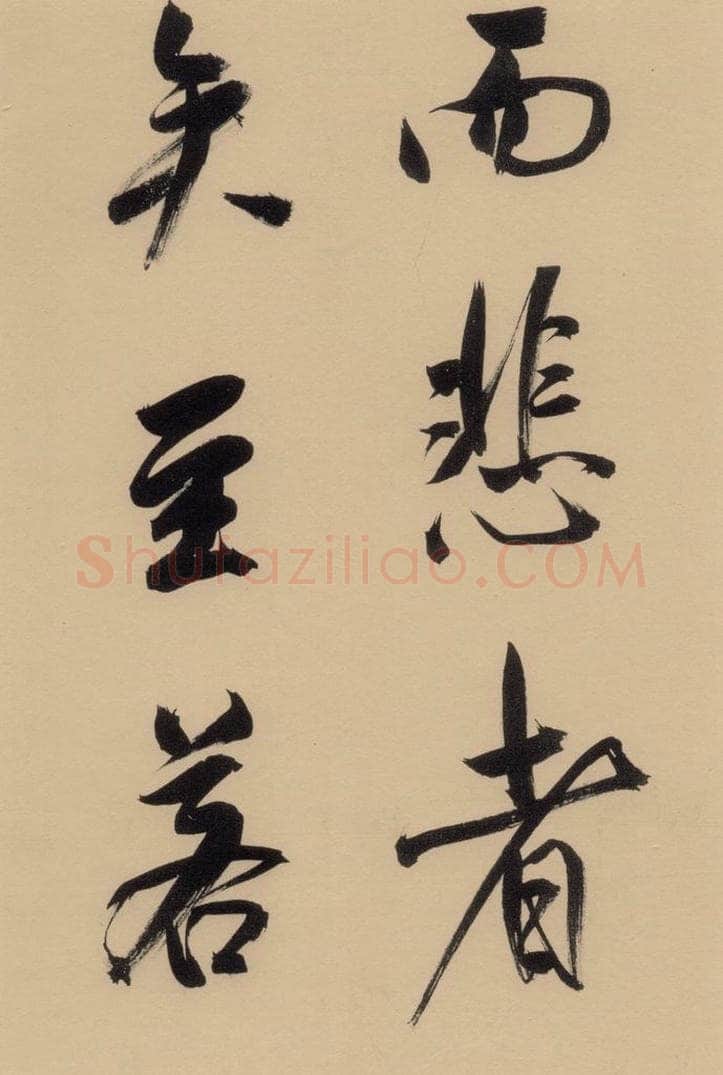 而悲者
矣至若
Shufaziliao.COM